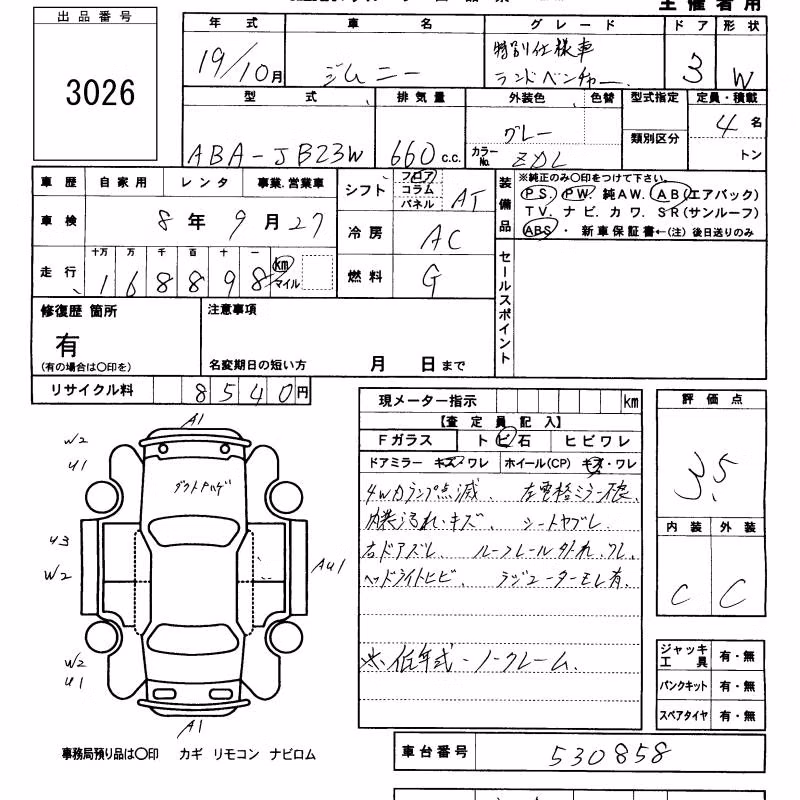 主催者用
出品番号
3026
年式 車名 グレード ドア 形状
19/10月 ジムニー 特別仕様車 ランドベンチャー 3 W
型式 排気量 外装色 色替 型式指定 定員・積載
ABA-JB23W 660 c.c. グレー カラーNo. ZDL 類別区分 4名 トン
車歴 自家用 レンタ 事業.営業車
シフト フロア コラム パネル AT
装備品 ※純正のみ〇印をつけて下さい。
PS. PW. 純AW. AB(エアバック)
TV. ナビ. カワ. SR(サンルーフ)
ABS・ 新車保証書←(注)後日送りのみ
車検 8年9月27
冷房 AC
走行 十万 万 千 百 十 一
168898 km マイル
燃料 G
セールスポイント
修復歴 箇所
有
(有の場合は〇印を)
注意事項
名変期日の短い方 月 日まで
リサイクル料 8540円
現メーター指示 km
【査定員記入】
Fガラス トビ石 ヒビワレ
ドアミラー キズ・ワレ ホイール(CP) キズ・ワレ
4WDランプ点滅. 左電格ミラー不良.
内装汚れ・キズ. シートヤブレ.
右ドアズレ. ルーフレール外れ.ワレ.
ヘッドライトヒビ. ラジエーターモレ有.
※低年式・ノークレーム.
評価点
3.5
内装 外装
C C
A1
W2
U1
ダクトハゲ
U3
W2
AU1
W2
U1
A1
ジャッキ工具 有・無
パンクキット 有・無
スペアタイヤ 有・無
事務局預り品は〇印 カギ リモコン ナビロム
車台番号 530858